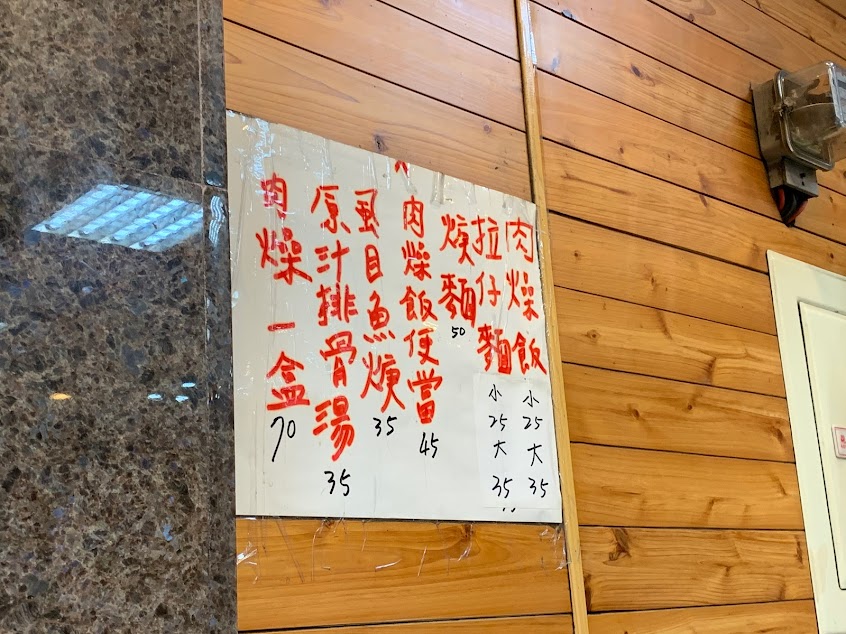 肉燥飯 小25大35
拉仔麵 小25大35
焿麵 50
肉燥飯便當 45
虱目魚焿 35
原汁排骨湯 35
肉燥一盒 70